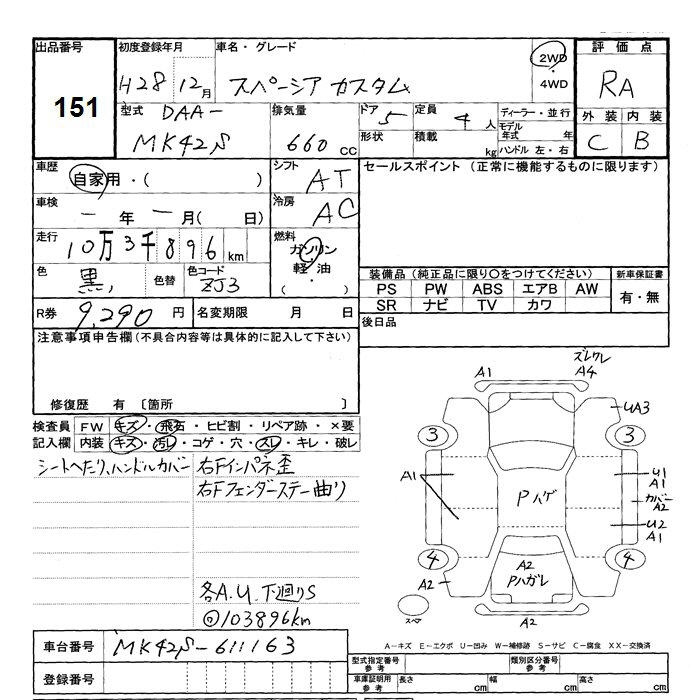 出品番号 初度登録年月 車名・グレード 2WD 評価点
151 H28 12月 スペーシア カスタム ・4WD RA
型式 DAA- 排気量 ドア 5 定員 4人 ディーラー・並行 外装 内装
MK42S 660 cc 形状 積載 kg モデル年式 年 ハンドル 左・右 C B
車歴 自家用・( ) シフト AT セールスポイント (正常に機能するものに限ります)
車検 ー 年 ー 月( 日) 冷房 AC
走行 10万3千896km 燃料 ガソリン
色 黒 色替 色コード ZJ3 軽油 ( ・ ) 装備品(純正品に限り○をつけてください) 新車保証書
PS PW ABS エアB AW 有・無
SR ナビ TV カワ
R券 9,290 円 名変期限 月 日 後日品
注意事項申告欄(不具合内容等は具体的に記入して下さい)
修復歴 有 〔箇所 〕
検査員 FW キズ・飛石・ヒビ割・リペア跡・×要
記入欄 内装 キズ・汚レ・コゲ・穴・スレ・キレ・破レ
シートヘたり、ハンドルカバー 右Fインパネ歪
右Fフェンダーステー曲り
各A.U.下廻りS
◎103896km
A1 ズレワレ A4
UA3
3 3
A1 Pハゲ U1 A1
カバー A2
U2 A1
4 4
A2 A2 Pハガレ
スペア A2
車台番号 MK42S-611163
A−キズ E−エクボ U−凹み W−補修跡 S−サビ C−腐食 XX−交換済
登録番号 型式指定番号 参考 類別区分番号 参考
車庫証明用 参考 長さ cm 幅 cm 高さ cm